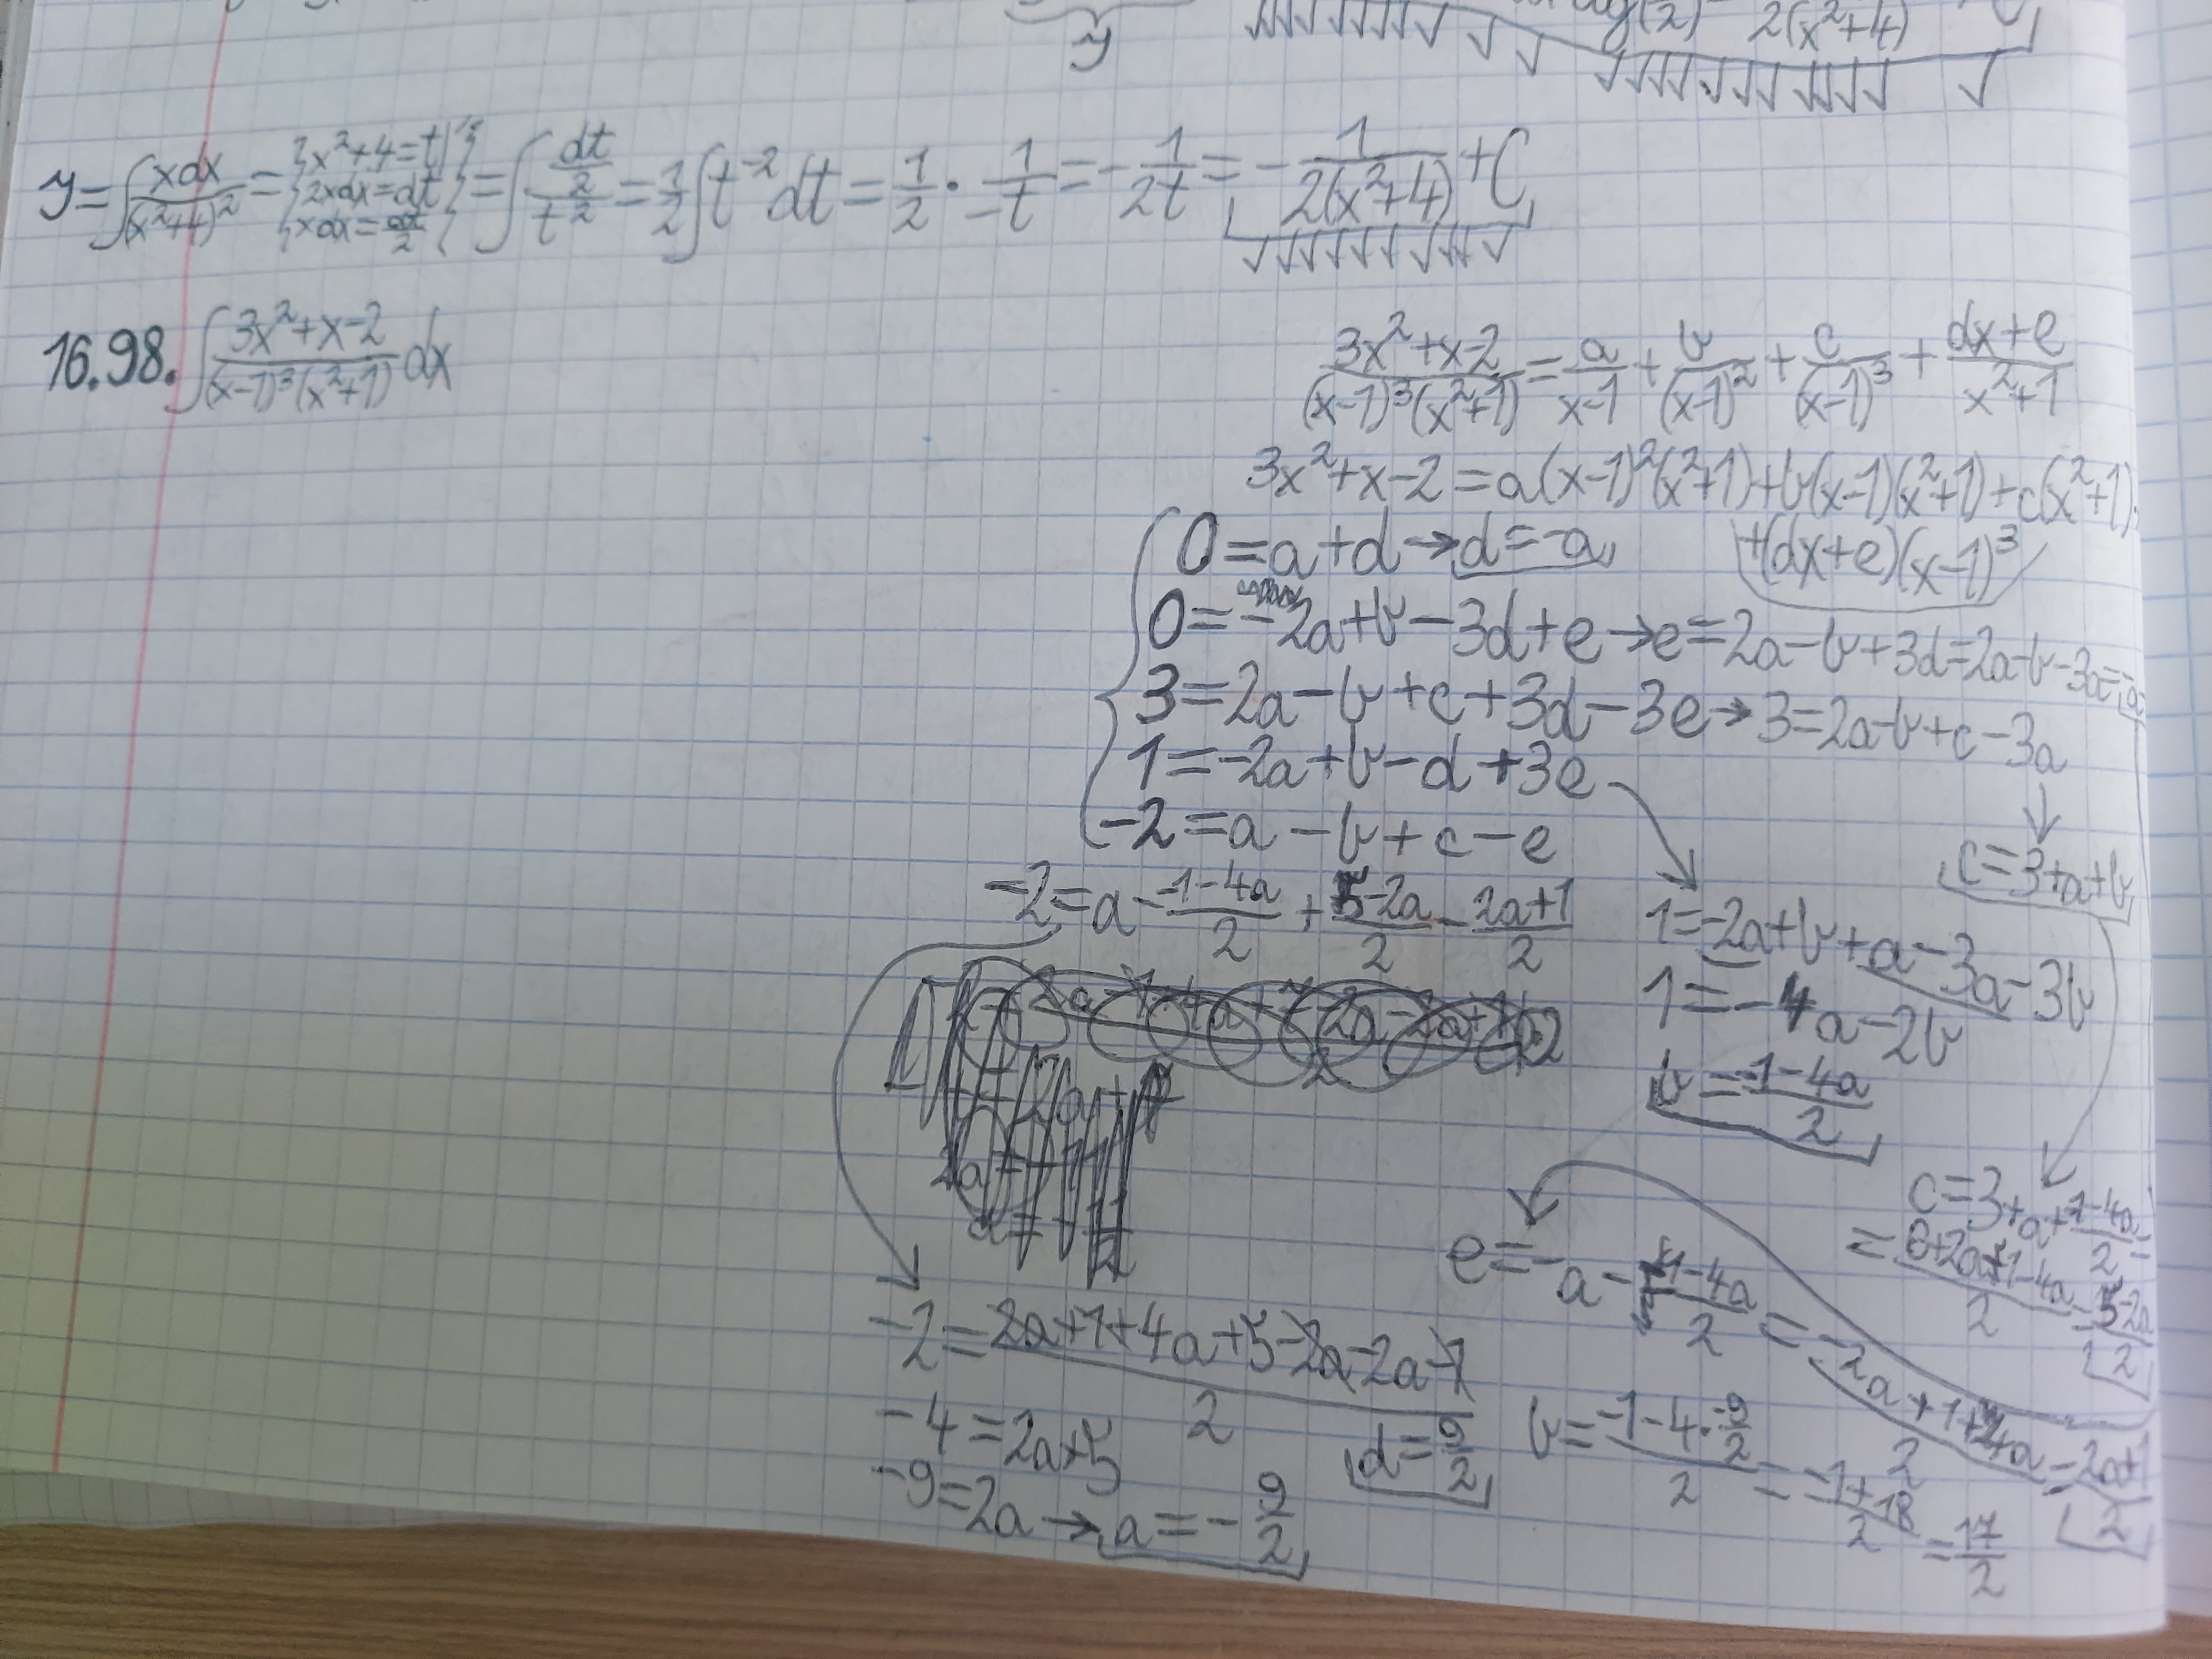 y
2(x²+4)
y = ∫ xdx/(x²+4)² = { x²+4=t | 2xdx=dt | xdx=dt/2 } = ∫ (dt/2)/t² = 1/2 ∫ t⁻² dt = 1/2 · 1/-t = - 1/2t = - 1/2(x²+4) + C
16.98. ∫ (3x²+x-2)/((x-1)³(x²+1)) dx
(3x²+x-2)/((x-1)³(x²+1)) = a/(x-1) + b/(x-1)² + c/(x-1)³ + (dx+e)/(x²+1)
3x²+x-2 = a(x-1)²(x²+1)+b(x-1)(x²+1)+c(x²+1)+
+(dx+e)(x-1)³
0=a+d → d=-a
0=-2a+b-3d+e → e=2a-b+3d=2a-b-3a=
3=2a-b+c+3d-3e → 3=2a-b+c-3a
1=-2a+b-d+3e
-2=a-b+c-e
c=3+a+b
-2=a - (-1-4a)/2 + (5-2a)/2 - (2a+1)/2
1=-2a+b+a-3a-3b
1=-4a-2b
b = (-1-4a)/2
c=3+a+(-1-4a)/2=
= (6+2a-1-4a)/2 = (5-2a)/2
e=-a - (-1-4a)/2 = (-2a+1+4a)/2 = (2a+1)/2
-2 = (2a+1+4a+5-2a-2a-1)/2
-4=2a+5
-9=2a → a=-9/2
d=9/2
b = (-1-4·-9/2)/2 = (-1+18)/2 = 17/2